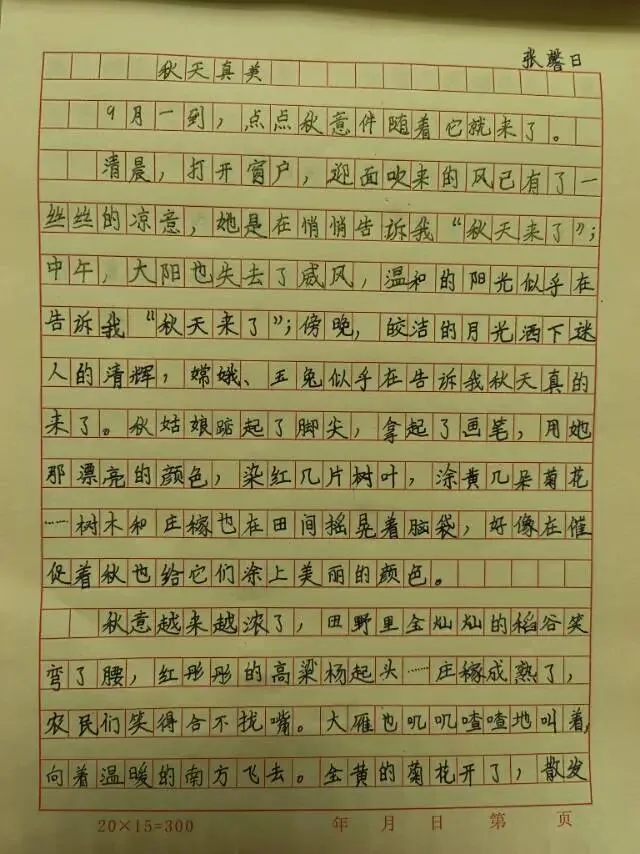 张馨日
秋天真美
9月一到，点点秋意伴随着它就来了。
清晨，打开窗户，迎面吹来的风已有了一
丝丝的凉意，她是在悄悄告诉我“秋天来了”；
中午，大阳也失去了威风，温和的阳光似乎在
告诉我“秋天来了”；傍晚，皎洁的月光洒下迷
人的清辉，嫦娥、玉兔似乎在告诉我秋天真的
来了。秋姑娘踮起了脚尖，拿起了画笔，用她
那漂亮的颜色，染红几片树叶，涂黄几朵菊花
……树木和庄稼也在田间摇晃着脑袋，好像在催
促着秋也给它们涂上美丽的颜色。
秋意越来越浓了，田野里金灿灿的稻谷笑
弯了腰，红彤彤的高粱杨起头……庄稼成熟了，
农民们笑得合不找嘴。大雁也叽叽喳喳地叫着，
向着温暖的南方飞去。金黄的菊花开了，散发
20×15=300 年 月 日 第 页